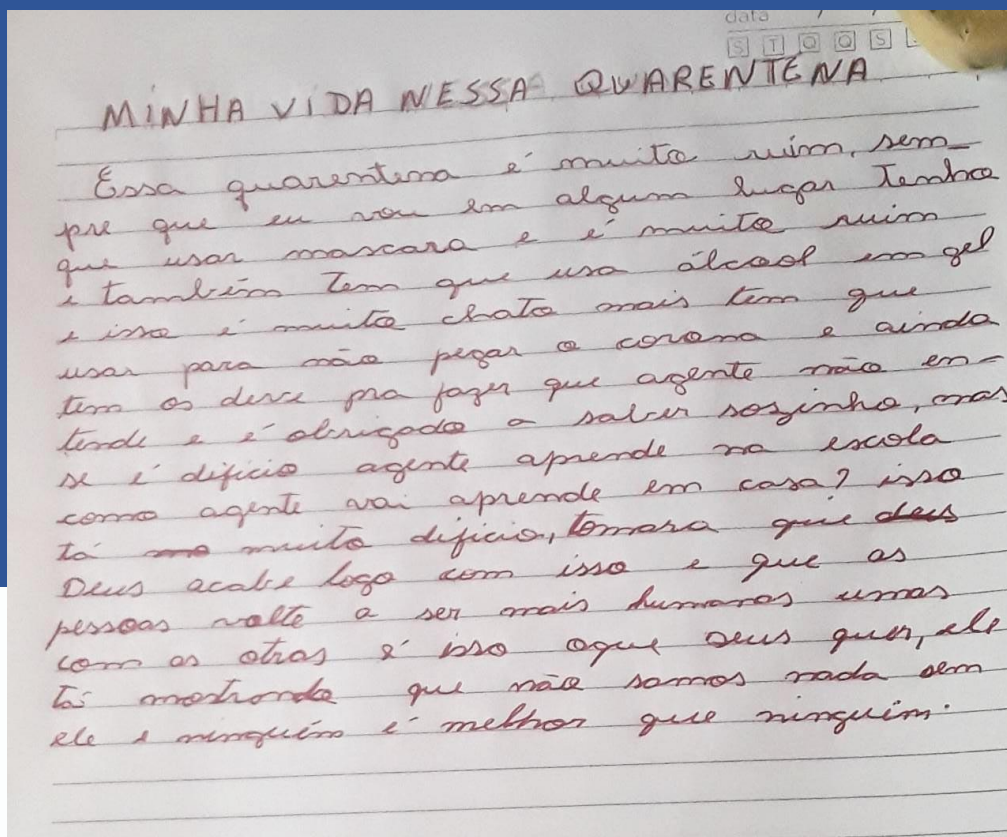 data / /
S T Q Q S
MINHA VIDA NESSA QUARENTENA
Essa quarentena é muito ruim, sem-
pre que eu vou em algum lugar Tenho
que usar mascara e é muito ruim
e também Tem que usa álcool em gel
e isso é muito chato mais tem que
usar para não pegar o corona e ainda
tem os deve pra fazer que agente não en-
tende e é obrigado a saber sozinho, mas
se é dificio agente aprende na escola
como agente vai aprende em casa? isso
tá muito dificio, tomara que deus
Deus acabe logo com isso e que as
pessoas volte a ser mais humanas umas
com as otras é isso oque Deus quer, ele
tá mostrondo que não somos nada sem
ele e ninguém é melhor que ninguém.